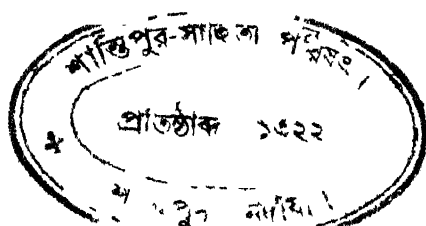 শান্তিপুর-সাহিত্য পরিষৎ।
প্রতিষ্ঠাব্দ ১৩২২
নদীয়া।